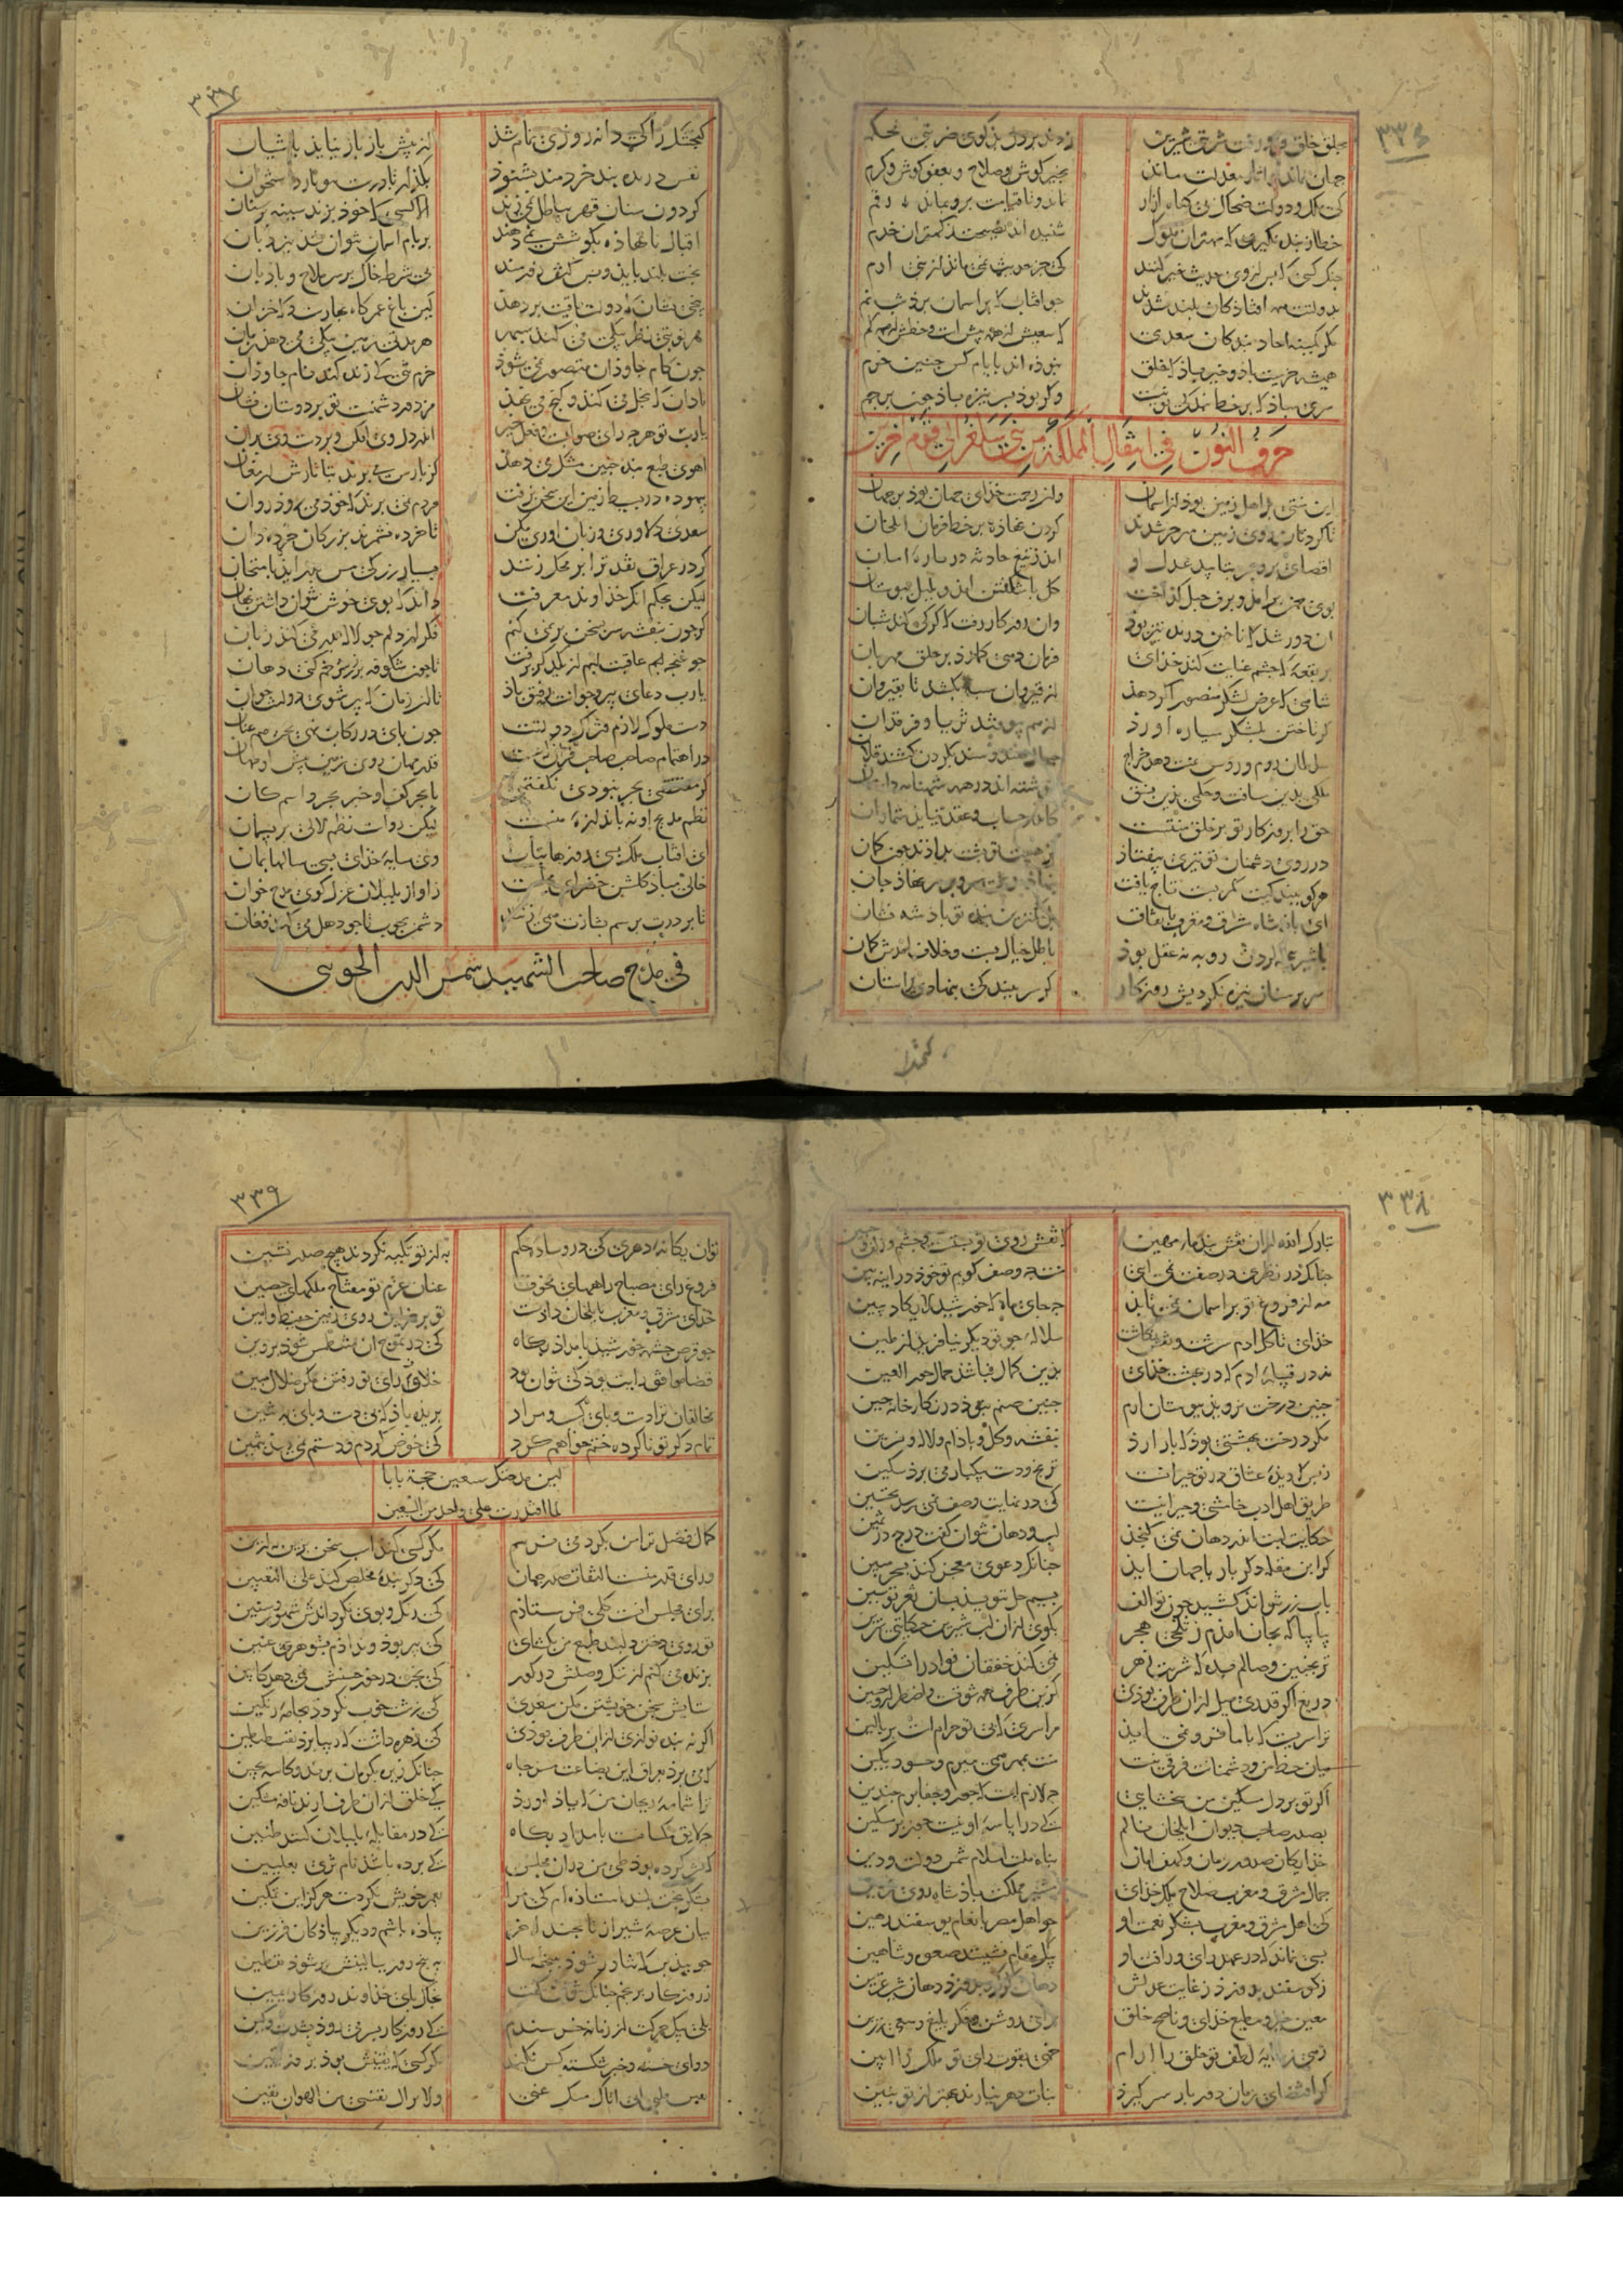 ۳۳۶
بخلق خلق
جهان نماند و آثار معدلت ماند بخیر کوش و صلاح و بعفو کوش و کرم
کی ملک و دولت ضحاک بی کناه ازار نماند و تا قیامت برو بماند رقم
خطای بنده نکیری که مهتران ملوک شنیده اند نصیحت ز کهتران خدم
خنک کسی که پس از وی حدیث خیر کنند کی جز حدیث نمی ماند از بنی ادم
بدولتت همه افتاذکان بلند شدند جو افتاب که بر اسمان برذ شبنم
مکر کمینه احاد بندکان سعدی که سعیش از همه بیش است و حظش از همه کم
همیشه خرمیت باذ و خیر باذ کی خلق نبوذه اند بایام کس جنین خرم
سری مباذ که بر خط بندکی تو نیست وکر بوذ بسر نیزه باذ جون برجم
حرف النون فی انتقال المملکة من بنی سلغر الی قوم اخرین
این منتی بر اهل زمین بوذ از اسمان وین رحمت خذای جهان بوذ بر جهان
تا کردنان روی زمین منزجر شدند کردن نهاذه بر خط فرمان ایلخان
اقصای بر و بحر بتایید عدل او امد ز تیغ حادثه در باره امان
بوی جمن برامد و برف جبل کداخت کل با شکفتن امد و بلبل ببوستان
ان دور شد که ناخن درنده تیز بوذ وان روزکار رفت که کرکی کند شبان
بر بقعه که جشم عنایت کند خذای فرمان دهی کمارذ بر خلق مهربان
شاهی که عرض لشکر منصور اکر دهذ از قیروان سپاه بکشد تا بقیروان
کر تاختن بلشکر سیاره اورذ از هم بیوفتد ثریا و فرقدان
سلطان روم و روس بمنت دهد خراج جیبال هند و سند بکردن کشد قلان
ملکی بدین مسافت و حکمی بذین نسق ننوشته اند در همه شهنامه داستان
حق را بروزکار تو بر خلق منتست کاندر حساب عقد نیاید شمار ان
در روی دشمنان تو تیری بیفتاذ کز هیبت تو پشت بداذند جون کمان
هر کو ببندکیت کمر بست تاج یافت بنهاذ مدعیت سر و بر سر نهاذ جان
ای باذشاه شرق و مغرب باتفاق بل کمترین بنده تو باذشه نشان
با شیر پنجه کردن روبه نه عقل بوذ باطل خیال بست و خلاف امدش کمان
سر بر سنان نیزه نکردیش روزکار کر سر ببندکی بنهاذی بر استان
کنجشک
۳۳۷
کنجشک را کی دانه روزی تمام شذ از پیش باز باز نیایذ باشیان
نفس درنده بند خردمند نشنوذ بکذار تا درشت بیوبارد استخوان
کردون سنان قهر بباطل نمی زند الا کسی کی خوذ بزند سینه بر سنان
اقبال نانهاذه بکوشش نمی دهند بر بام اسمان نتوان شد بنردبان
بخت بلند باید و پس کتف زورمند بی شرط خاک بر سر ملاح و باذبان
بیخی نشان که دولت باقیت بر دهد کین باغ عمر کاه بهارست و که خزان
هر نوبتی نظر بیکی می کند سپهر هر مدتی زمین بیکی می دهد زمان
جون کام جاوذان متصور نمی شوذ خرم تنی کی زنده کند نام جاوذان
نادان کی بخل می کند و کنج می نهذ مزدور دشمنست تو بر دوستان فشان
یا رب تو هر جه رای صوابست و فعل خیر اندر دل وی افکن و بر دست وی بران
اهوی طبع بنده جنین مشک می دهذ کز پارس می برند بتاتارش ارمغان
بیهوده در بسیط زمین این سخن نرفت مردم نمی برند کی خوذ می رود روان
سعدی دلاوری و زبان اوری مکن تا خرده نشمرند بزرکان خرده دان
کر در عراق نقد ترا بر محک زنند بسیار زر کی مس بدر اید بامتحان
لیکن بحکم انک خذاوند معرفت داند کی بوی خوش نتوان داشتن نهان
کر جون بنفشه سر بسخن بر نمی کنم فکر از دلم جو لاله بدر می کند زبان
جو غنجه هم عاقبت لبم از یکدکر برفت تا جون شکوفه بر زر سرخم کنی دهان
یا رب دعای پیر و جوانت رفیق باذ تا ان زمان کی پیر شوی دولتت جوان
دست ملوک لازم فتراک دولتت جون پای در رکاب نهی بخت هم عنان
در اهتمام صاحب صاحب قران تست قدر مهان روی زمین پیش او مهان
کر مقتضی بجر نبودی نکفتمی با بحر کف او خبر بحر و اسم کان
نظم مدیح او نه باندازه منست لیکن رواست نظم لالی بریسمان
ای افتاب ملک بسی روزها بتاب وی سایه خذای بسی سالها بمان
خالی مباذ کلشن خضرای مجلست ز اواز بلبلان غزل کوی مدح خوان
تا بر درت برسم بشارت همی زنند دشمن بجوب تا جو دهل می کند فغان
فی مدح صاحب الشهید شمس الدین الجوینی
۳۳۸
تبارک الله از ان نقش بند ماء مهین کی نقش روی تو بستست و جشم و زلف و جبین
جنانک در نظری در صفت نمی ایی منت جه وصف کویم تو خوذ در اینه بین
مه از فروغ تو بر اسمان نمی تابذ جه جای ماه کی خورشید لا یکاد یبین
خذای تا کل ادم سرشت و نقش نکاشت سلاله جو تو دیکر نیافرید از طین
نه در قبیله ادم کی در بهشت خذای بذین کمال نباشذ جمال حور العین
جنین درخت نروید ببوستان ارم جنین صنم نبوذ در نکارخانه جین
مکر درخت بهشتی بوذ کی بار ارذ بنفشه و کل و باذام و لاله و نسرین
ز بس کی دیده عشاق در تو حیرانست ترنج و دست بیکبار می برد سکین
طریق اهل ادب خامشی و حیرانیست کی در نهایت وصفت نمی رسد تحسین
حکایت لبت اندر دهان نمی کنجد لب و دهان نتوان کفت درج در ثمین
کر ابن مقله دکر بار با جهان ایذ جنانک دعوی معجز کند بسحر مبین
باب زر نتواند کشید جون تو الف بسیم حل ننویسد بسان ثغر تو سین
بیا بیا که بجان امذم ز تلخی هجر بکوی از ان لب شیرین حکایتی شیرین
ترنجبین وصالم بده که شربت زهر نمی کند خفقان فواد را تسکین
دریغ اکر قدری میل از ان طرف بوذی کزین طرف همه شوقست و اضطراب و حنین
ترا سریست که با ما فرو نمی ایذ مرا سری که بی تو حرامست بر بالین
میان حظ من و دشمنانت فرقی نیست منت بمهر همی میرم و حسود بکین
اکر تو بر دل مسکین من نبخشایی جه لازمست کی جور و جفا برم جندین
بصدر صاحب دیوان ایلخان نالم کی در ایاسه او نیست جور بر مسکین
خذایکان صدور زمان و کهف امان پناه ملت اسلام شمس دولت و دین
جمال مشرق و مغرب صلاح خلق خذای مشیر مملکت باذشاه روی زمین
کی اهل مشرق و مغرب بشکر نعمت او جو اهل مصر بانعام یوسفند رهین
بسی نماند که در عهد رای و رافت او بیک مقام نشینند صعوه و شاهین
ز کوسفند بدوزد رعایت عدلش دهان کرک و بدوزد دهان شیر عرین
معین خیر و مطیع خذای و ناصح خلق برای روشن و فکر بلیغ و سعی رزین
زهی بسایه لطف تو خلق را ارام خهی بقوت رای تو ملک را ایین
کر اقتضای زمان دور باز سر کیرذ بنات دهر نیارند بهتر از تو بنین
۳۳۹
توان یکانه دهری کی در وساده حکم به از تو تکیه نکردند هیچ صدر نشین
فروغ رای تو مصباح راههای مخوف عنان عزم تو مفتاح ملکهای حصین
خذای مشرق و مغرب بایلخان دادست تو بر خزاین روی زمین حفیظ و امین
جو قرص جشمه خورشید بامداذ بکاه کی در تموج ان منطمس شوذ پروین
قضا موافق رایت بود کی نتوان بوذ خلاف رای تو رفتن مکر ضلال مبین
مخالفان ترا دست و پای اسب مراد بریده باذ که بی دست و پای به تنین
تمام ذکر تو ناکرده ختم خواهم کرد کی خوض کردم و دستم نمی دهذ تمیین
لئن مدحتک سبعین حجة دأبا
لما اقتدرت علی واحد من السبعین
کمال فضل ترا من بکرد می نرسم مکر کسی کند اسب سخن بزین به ازین
ورای قدر منست التفات صدر جهان کی ذکر بنده مخلص کند علی التعیین
برای مجلس انست کلی فرستادم کی رنک و بوی نکرداندش شهور و سنین
تو روی دختر دلبند طبع من بکشای کی پیر بوذ و نداذم بشوهر عنین
بزنده می کنم از ننک وصلتش در کور کی بخت در خور حسنش نمی دهد کابین
ستایش سخن خویشتن مکن سعدی کی زشت خوب نکردد بجامه رنکین
اکر نه بنده نوازی از ان طرف بوذی کی زهره داشت که دیبا برذ بقسطنطین
کی می برد بعراق این بضاعت مزجاه جنانک زیره بکرمان برند و کاسه بجین
ترا شمامه ریحان من کی یاذ اورذ کی خلق از ان طرف ارند نافه مشکین
جه لایق مکسانست بامداد بکاه کی در مقابله بلبلان کنند طنین
که نشر کرده بوذ طی من در ان مجلس کی برده باشذ نام ثری بعلیین
بشکر بخت بلند ایستاذه ام کی مرا بعمر خویش نکردست هرکز این تمکین
میان عرصه شیراز تا بجند اخر پیاذه باشم و دیکر پیاذکان فرزین
جو بیذبن کی تناور شوذ ببنجه سال به پنج روز ببالینش بر شوذ یقطین
ز روزکار برنجم جنانک نتوان کفت بخاکپای خذاوند روزکار یمین
بلی بیک حرکت از زمانه خرسندم کی روزکار بسر می روذ بشدت و لین
دوای خسته و جبر شکسته کس نکند مکر کسی کی یقینش بوذ بروز یقین